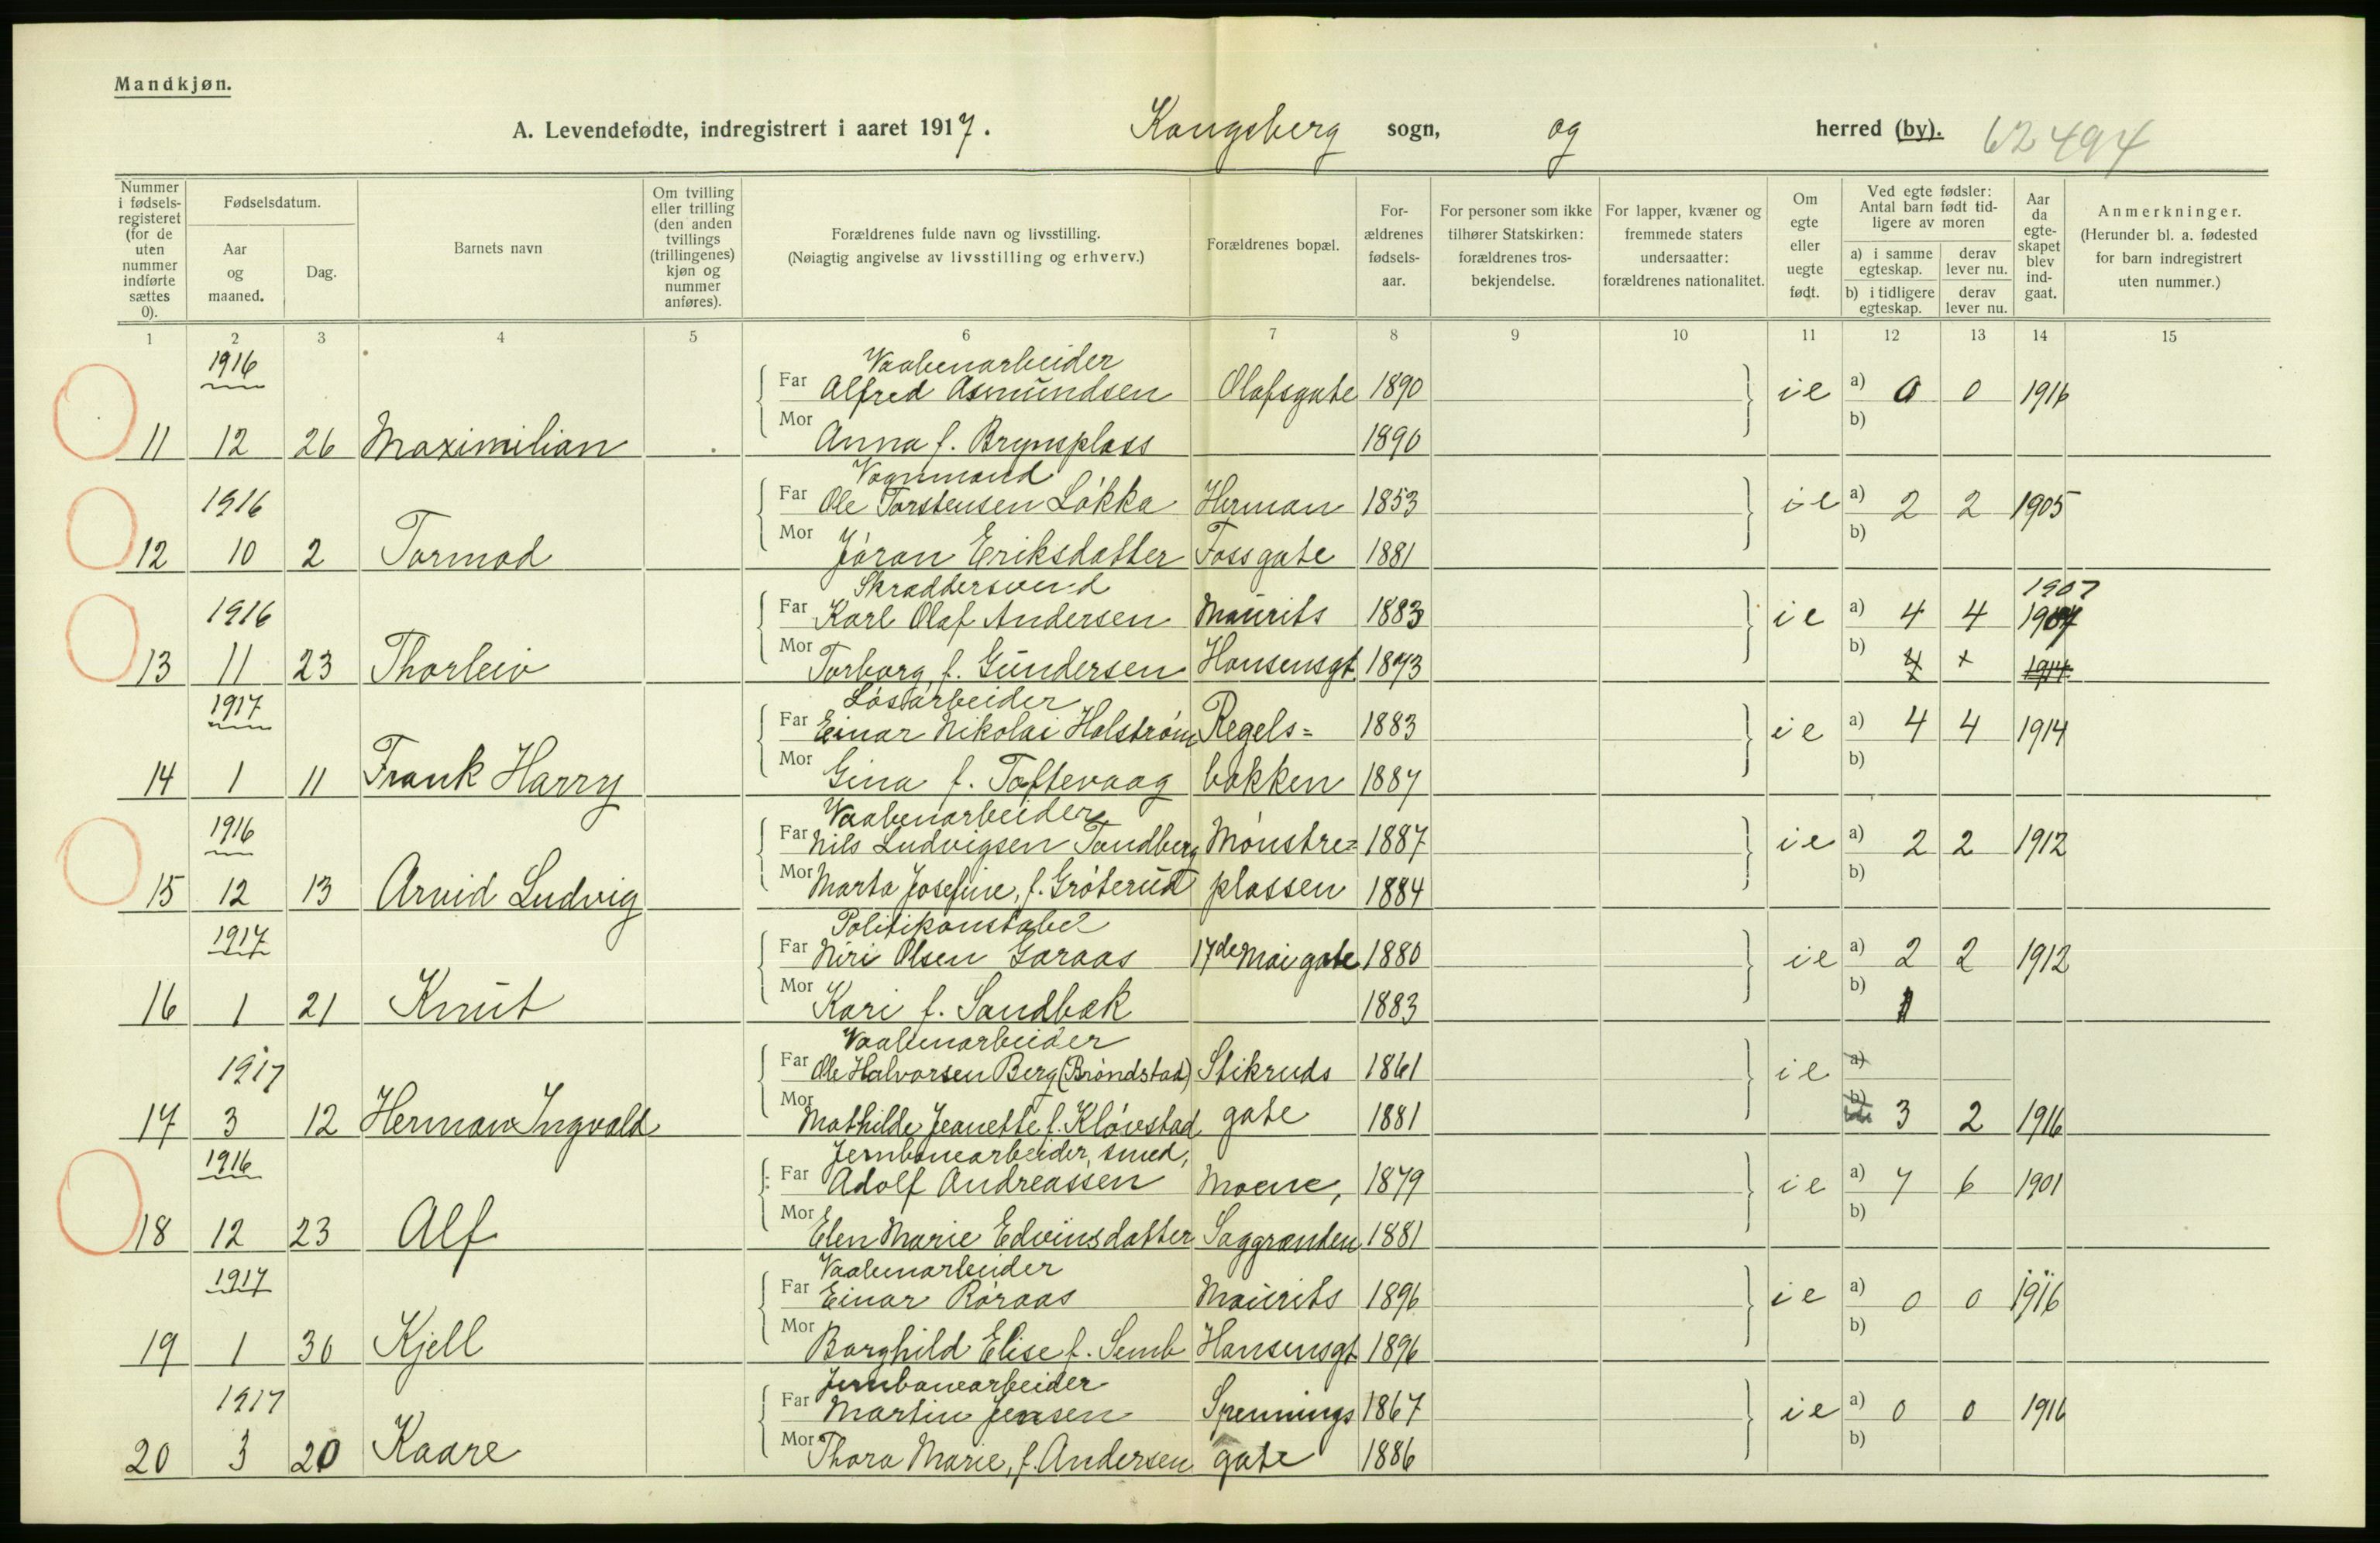 Mandkjøn.
A. Levendefødte, indregistrert i aaret 1917. Kongsberg sogn, og herred (by). 62494
Nummer i fødselsregisteret (for de uten nummer indførte sættes 0).
Fødselsdatum.
Aar og maaned.
Dag.
Barnets navn
Om tvilling eller trilling (den anden tvillings (trillingenes) kjøn og nummer anføres).
Forældrenes fulde navn og livsstilling.
(Nøiagtig angivelse av livsstilling og erhverv.)
Forældrenes bopæl.
Forældrenes fødselsaar.
For personer som ikke tilhører Statskirken: forældrenes trosbekjendelse.
For lapper, kvæner og fremmede staters undersaatter: forældrenes nationalitet.
Om egte eller uegte født.
Ved egte fødsler: Antal barn født tidligere av moren
a) i samme egteskap. derav lever nu.
b) i tidligere egteskap. derav lever nu.
Aar da egteskapet blev indgaat.
Anmerkninger.
(Herunder bl. a. fødested for barn indregistrert uten nummer.)
1 2 3 4 5 6 7 8 9 10 11 12 13 14 15
1916 Vaabenarbeider
Far Alfred Asmundsen Olafsgate 1890 ie a) 0 0 1916
11 12 26 Maximilian Mor Anna f. Brynsplass 1890 b)
Vognmand
1916 Far Ole Torstensen Løkka Herman 1853 ie a) 2 2 1905
12 10 2 Tormod Mor Jøran Eriksdatter Fossgate 1881 b)
Skræddersvend 1907
1916 Far Karl Olaf Andersen Maurits 1883 ie a) 4 4
13 11 23 Thorleiv Mor Torborg, f. Gundersen Hansensgt. 1873 b) 1914
1917 Løsarbeider
Far Einar Nikolai Holstrøm Regels= 1883 ie a) 4 4 1914
14 1 11 Frank Harry Mor Gina f. Toftevaag bakken 1887 b)
1916 Vaabenarbeider
Far Nils Ludvigsen Tandberg Mønstre= 1887 ie a) 2 2 1912
15 12 13 Arvid Ludvig Mor Marta Josefine, f. Grøterud plassen 1884 b)
1917 Politikonstabel
Far Niri Olsen Garaas 17de Mai gate 1880 ie a) 2 2 1912
16 1 21 Knut Mor Kari f. Sandbæk 1883 b) 1
Vaabenarbeider
1917 Far Ole Halvorsen Berg (Brøndstad) Stikruds 1861 ie a)
17 3 12 Herman Ingvald Mor Mathilde Jeanette f. Kløvstad gate 1881 b) 3 2 1916
1916 Jernbanearbeider, smed,
Far Adolf Andreassen Moene, 1879 ie a) 7 6 1901
18 12 23 Alf Mor Elen Marie Edvinsdatter Saggrenden 1881 b)
1917 Vaabenarbeider
Far Einar Røraas Maurits 1896 ie a) 0 0 1916
19 1 30 Kjell Mor Borghild Elise f. Semb Hansensgt 1896 b)
Jernbanearbeider
1917 Far Martin Jensen Spennings 1867 ie a) 0 0 1916
20 3 20 Kaare Mor Thora Marie, f. Andersen gate 1886 b)